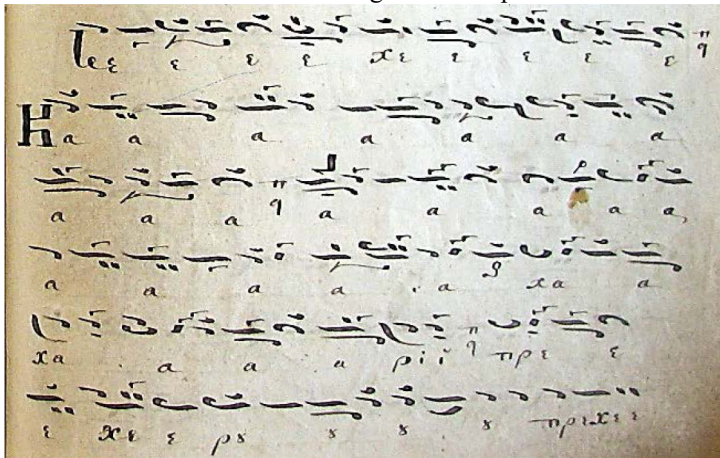 εε ε ε ε χε ε ε ε ε
Η α α α α α α α α
α α α α α α α α
α α α α α χα α
χα α α α ριϊ πρε ε
ε χε ε ρȣ ȣ ȣ ȣ πρεχεε